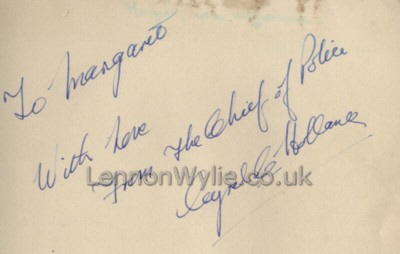 To Margaret
With Love
From The Chief of Police
Holland
LennonWylie.co.uk